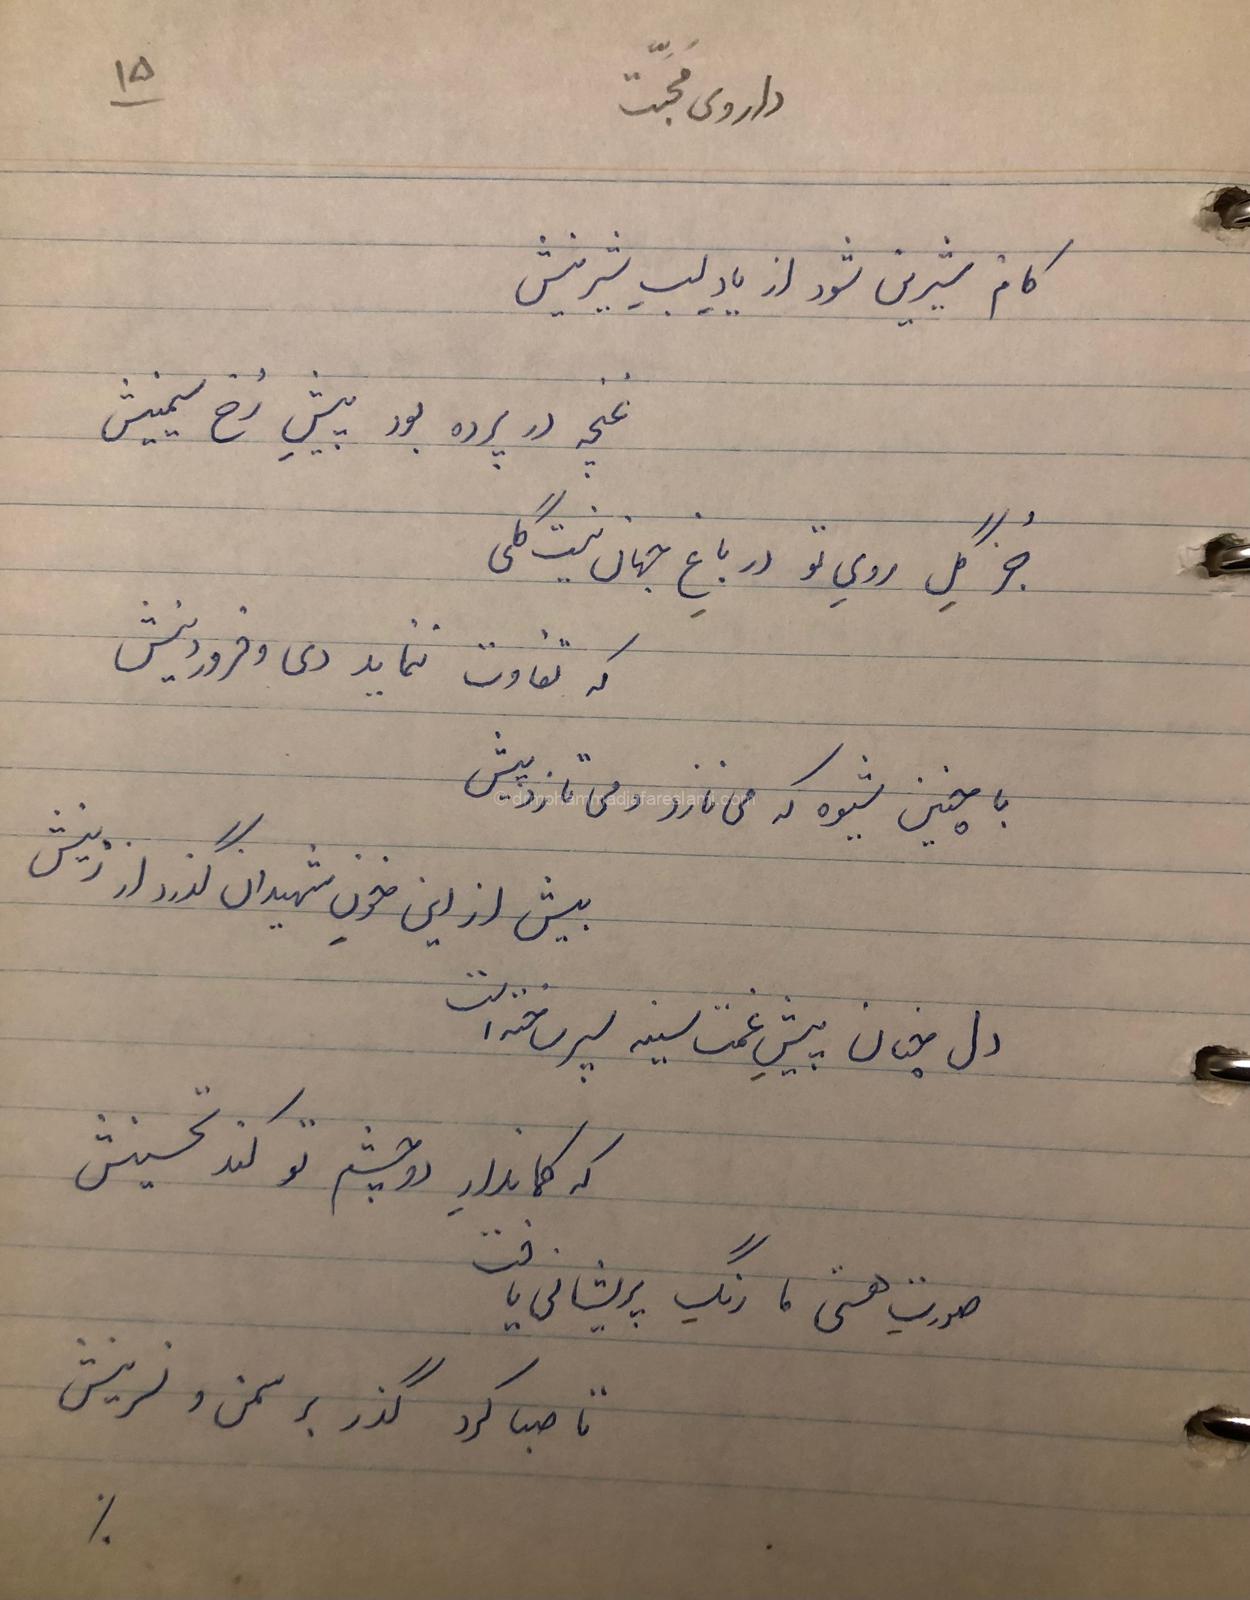 ۱۵
داروی مُحَبّت
کام شیرین شود از یادِ لبِ شیرینش
غنچه در پرده بود پیشِ رُخ سیمینش
جُز گلِ رویِ تو در باغِ جهان نیست گلی
که تفاوت ننماید دی و فروردینش
با چنین شیوه که می نازد و می تازد پیش
© drmohammadjafareslami.com
بیش از این خونِ شهیدان گذرد از زینش
دل چنان پیشِ غمت سینه سپر ساخته است
که کماندارِ دو چشم تو کند تحسینش
صورتِ هستی ما رنگِ پریشانی یافت
تا صبا کرد گذر بر سمن و نسرینش
٪